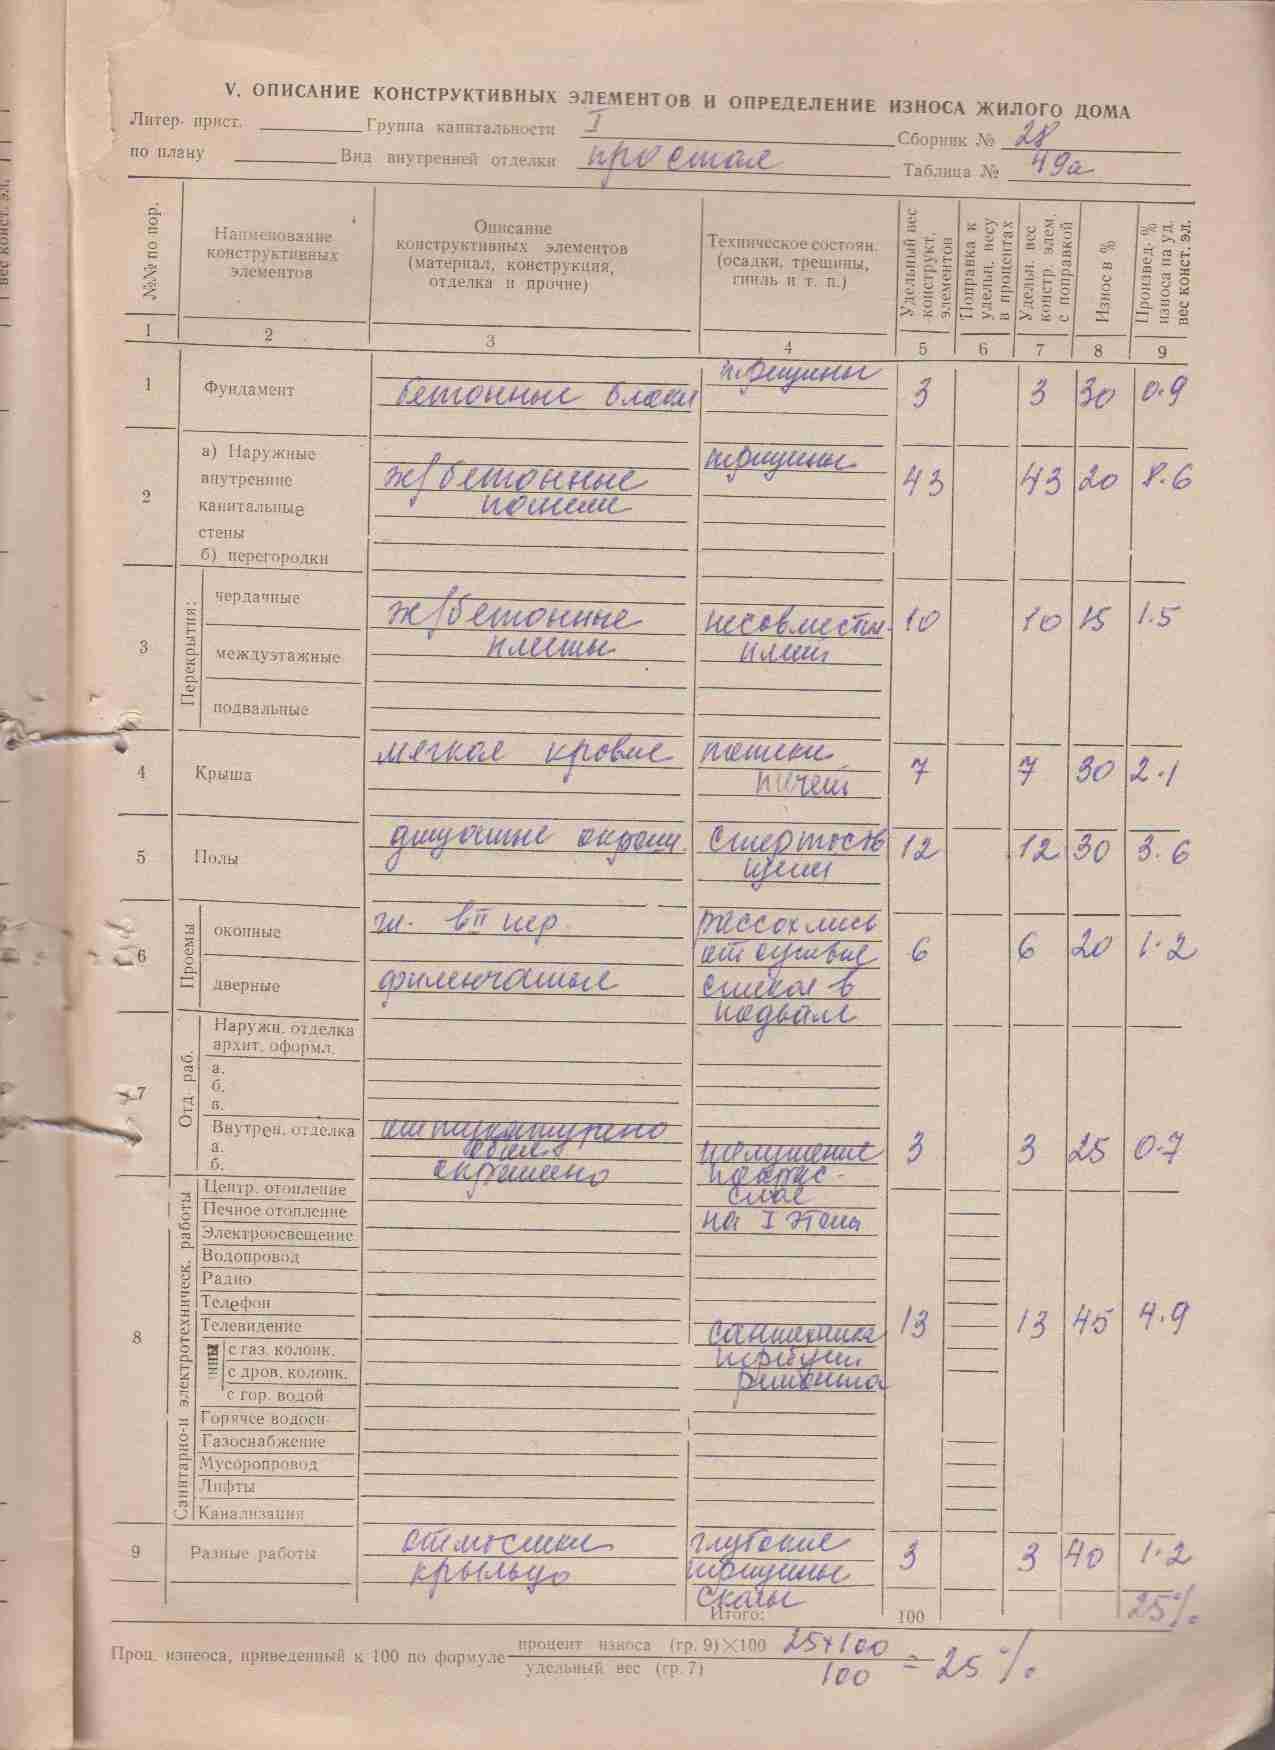 V. ОПИСАНИЕ КОНСТРУКТИВНЫХ ЭЛЕМЕНТОВ И ОПРЕДЕЛЕНИЕ ИЗНОСА ЖИЛОГО ДОМА
Литер. прист. Группа капитальности I Сборник № 28
по плану Вид внутренней отделки простая Таблица № 49а
№№ по пор.
Наименование конструктивных элементов
Описание конструктивных элементов (материал, конструкция, отделка и прочие)
Техническое состоян. (осадки, трещины, гниль и т. п.)
Удельный вес конструкт. элементов
Поправка к удельн. весу в процентах
Удельн. вес констр. элем. с поправкой
Износ в %
Произвед. % износа на уд. вес конст. эл.
1 2 3 4 5 6 7 8 9
трещины
1 Фундамент бетонные блоки 3 3 30 0.9
а) Наружные трещины
внутренние ж/бетонные 43 43 20 8.6
2 капитальные панели
стены
б) перегородки
Перекрытия:
чердачные
ж/бетонные несовместим. 10 10 15 1.5
3 междуэтажные плиты плит
подвальные
мягкая кровля
4 Крыша течет 7 7 30 2.1
дощатые окраш. стертость
5 Полы щели 12 12 30 3.6
Проемы
оконные рассохлись
6 отсутствие 6 6 20 1.2
дверные филенчатые стекол в
подвале
Отд. раб.
Наружн. отделка
архит. оформл.
а.
7 б.
в.
Внутрен. отделка оштукатурено
а. шелушение 3 3 25 0.7
б. окрашено покрас.
Санитарно-и электротехническ. работы
Центр. отопление слоя
Печное отопление на I этаж
Электроосвещение
Водопровод
Радио
Телефон
8 Телевидение сантехника 13 13 45 4.9
с газ. колонк. требует
с дров. колонк. ремонта
с гор. водой
Горячее водосн.
Газоснабжение
Мусоропровод
Лифты
Канализация
9 Разные работы отмостка глубокие 3 3 40 1.2
крыльцо трещины
сколы 25%
Итого: 100
Проц. износа, приведенный к 100 по формуле процент износа (гр. 9)×100 25×100
удельный вес (гр. 7) 100 = 25%